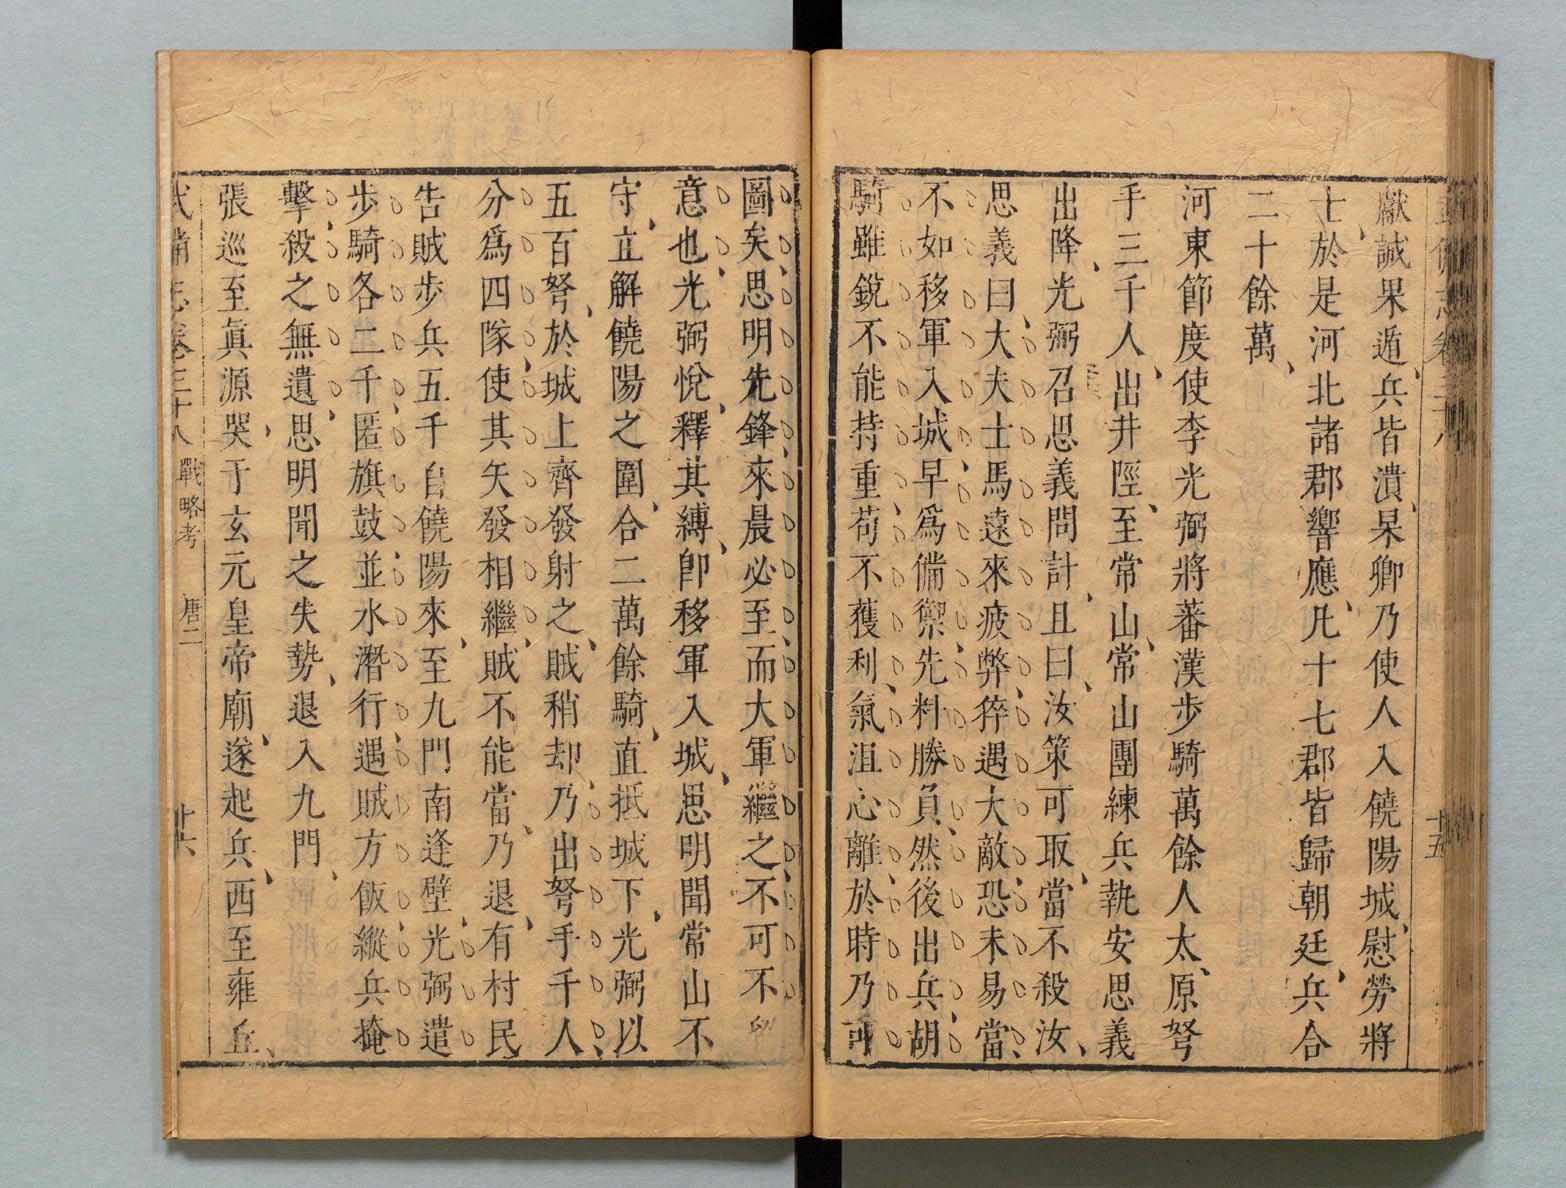 武備志卷三十八
十五
獻誠果遁兵皆潰杲卿乃使人入饒陽城慰勞將
士於是河北諸郡響應凡十七郡皆歸朝廷兵合
二十餘萬
河東節度使李光弼將蕃漢步騎萬餘人太原弩
手三千人出井陘至常山常山團練兵執安思義
出降光弼召思義問計且曰汝策可取當不殺汝
思義曰大夫士馬遠來疲弊猝遇大敵恐未易當
不如移軍入城早爲備禦先料勝負然後出兵胡
騎雖銳不能持重苟不獲利氣沮心離於時乃可
圖矣思明先鋒來晨必至而大軍繼之不可不
意也光弼悅釋其縛卽移軍入城思明聞常山不
守立解饒陽之圍合二萬餘騎直抵城下光弼以
五百弩於城上齊發射之賊稍却乃出弩手千人
分爲四隊使其矢發相繼賊不能當乃退有村民
告賊步兵五千自饒陽來至九門南逢壁光弼遣
步騎各二千匿旗鼓並水潛行遇賊方飯縱兵掩
擊殺之無遺思明聞之失勢退入九門
張巡至眞源哭于玄元皇帝廟遂起兵西至雍丘
武備志卷三十八 戰略考 唐二 十六